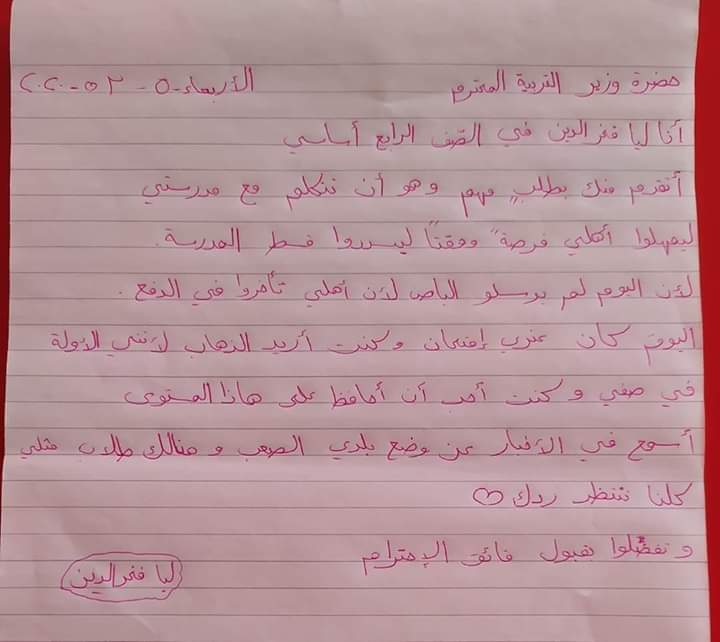 حضرة وزير التربية المحترم الأربعاء-٥-٢-٢٠٢٠
أنا ليا فخرالدين في الصّف الرابع أساسي
أتقدم منك بطلبٍ مهم وهو أن تتكلم مع مدرستي
ليمهلوا أهلي فرصةً ووقتاً ليسددوا قسط المدرسة.
لأن اليوم لم يرسلو الباص لأن أهلي تأخروا في الدفع.
اليوم كان عندي إمتحان وكنت أريد الذهاب لأنني الأولة
في صفي وكنت أحب أن أحافظ على هاذا المستوى
أسمع في الأخبار عن وضع بلدي الصعب و هنالك طلاب مثلي
كلنا ننتظر ردك ♡
وتفضّلوا بقبول فائق الإحترام
ليا فخرالدين